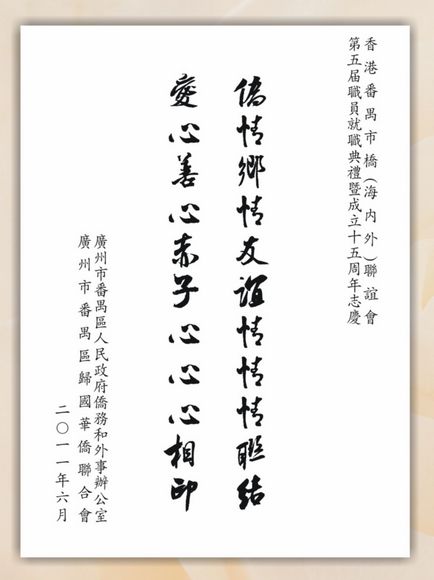 香港番禺市橋(海內外)聯誼會
第五届職員就職典禮暨成立十五周年志慶
僑情鄉情友誼情情情聯結
愛心善心赤子心心心相印
廣州市番禺區人民政府僑務和外事辦公室
廣州市番禺區歸國華僑聯合會
二〇一一年六月